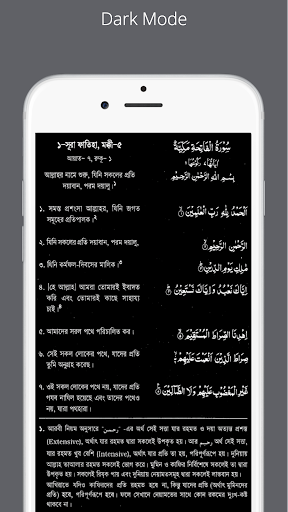 Dark Mode
১-সূরা ফাতিহা, মক্কী-৫
আয়াত- ৭, রুকু- ১
আল্লাহর নামে শুরু, যিনি সকলের প্রতি
দয়াবান, পরম দয়ালু,১
سُوْرَةُ الْفَاتِحَةِ مَكِّيَّةٌ
بِسْمِ اللهِ الرَّحْمٰنِ الرَّحِيْمِ
১. সমস্ত প্রশংসা আল্লাহর, যিনি জগত
সমূহের প্রতিপালক।২
اَلْحَمْدُ لِلّٰهِ رَبِّ الْعٰلَمِيْنَ
২. যিনি সকলের প্রতি দয়াবান, পরম দয়ালু,
الرَّحْمٰنِ الرَّحِيْمِ
৩. যিনি কর্মফল-দিবসের মালিক।
مٰلِكِ يَوْمِ الدِّيْنِ
৪. [হে আল্লাহ] আমরা তোমারই ইবাদত
করি এবং তোমারই কাছে সাহায্য
চাই।
اِيَّاكَ نَعْبُدُ وَاِيَّاكَ نَسْتَعِيْنُ
৫. আমাদের সরল পথে পরিচালিত কর।
اِهْدِنَا الصِّرَاطَ الْمُسْتَقِيْمَ
৬. সেই সকল লোকের পথে, যাদের প্রতি
তুমি অনুগ্রহ করেছ।
صِرَاطَ الَّذِيْنَ اَنْعَمْتَ عَلَيْهِمْ
৭. ওই সকল লোকের পথে নয়, যাদের প্রতি
গযব নাযিল হয়েছে এবং তাদের পথেও
নয়, যারা পথহারা।
غَيْرِ الْمَغْضُوْبِ عَلَيْهِمْ وَلَا الضَّآلِّيْنَ
১. আরবী নিয়ম অনুসারে رحمن -এর অর্থ সেই সত্তা যার রহমত ও দয়া অত্যন্ত প্রশস্ত
(Extensive), অর্থাৎ যার রহমত দ্বারা সকলেই উপকৃত হয়। আর رحيم অর্থ সেই সত্তা,
যার রহমত খুব বেশি (Intensive), অর্থাৎ যার প্রতি তা হয়, পরিপূর্ণরূপে হয়। দুনিয়ায়
আল্লাহ তাআলার রহমত সকলেই ভোগ করে। মুমিন ও কাফির নির্বিশেষে সকলেই তা দ্বারা
উপকৃত হয়। সকলেই রিযক পায় এবং দুনিয়ায় নেয়ামতসমূহ দ্বারা সকলেই লাভবান হয়।
আখিরাতে যদিও কাফিরদের প্রতি রহমত হবে না, কিন্তু যাদের প্রতি (অর্থাৎ মুমিনদের
প্রতি) হবে, পরিপূর্ণরূপে হবে। ফলে সেখানে নেয়ামতের সাথে কোন রকমের দুঃখ-কষ্ট
থাকবে না।